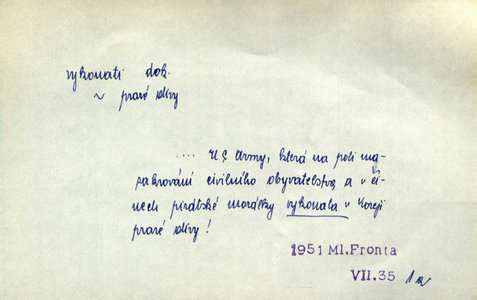 vykonati dok.
~ pravé divy
.... US Army, která na poli ma-
sakrování civilního obyvatelstva a v či-
nech pirátské morálky vykonala v Koreji
pravé divy!
1951 Ml.Fronta
VII.35